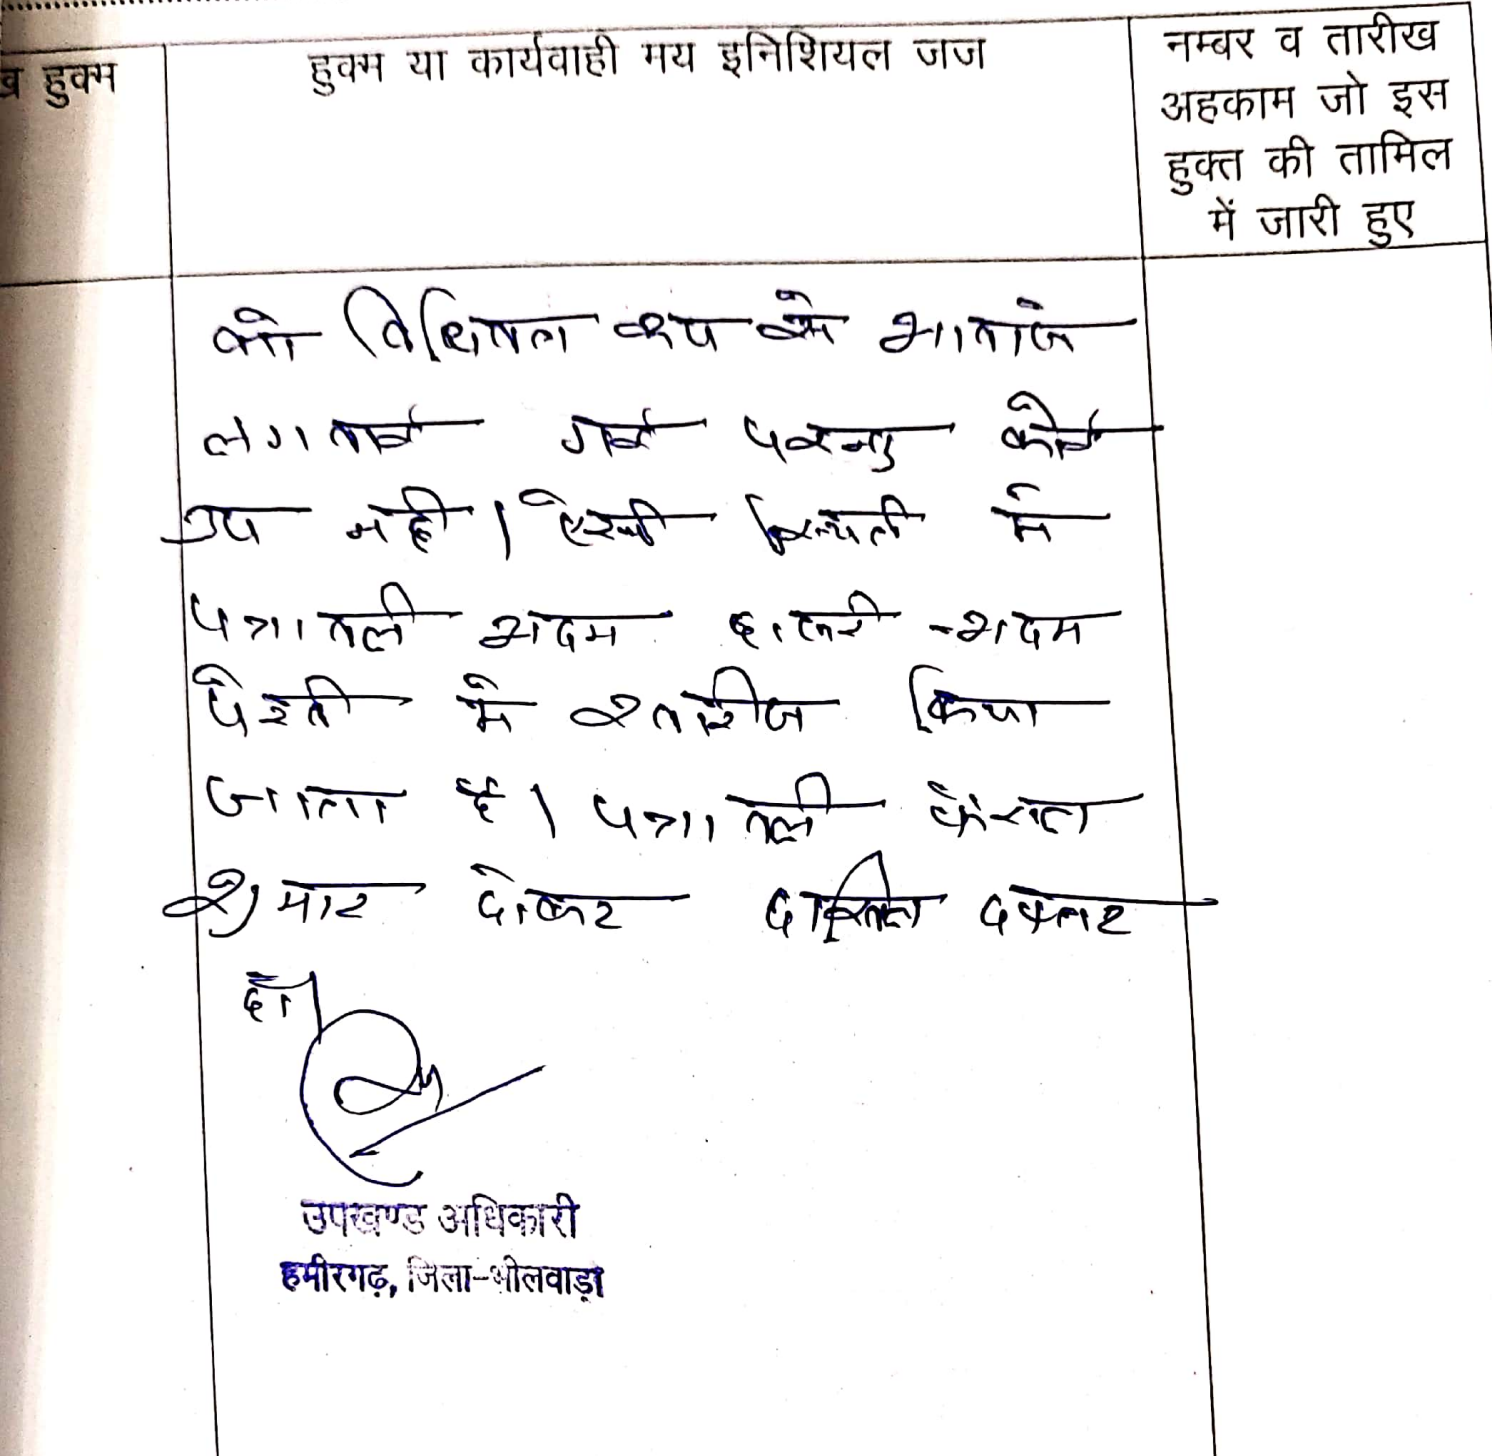 व हुक्म
हुक्म या कार्यवाही मय इनिशियल जज
नम्बर व तारीख
अहकाम जो इस
हुक्त की तामिल
में जारी हुए
को विधिवत रूप से आवाजे
लगवाई गई परन्तु कोई
उप नही। ऐसी स्थिती मे
पत्रावली अदम हाजरी - अदम
पेरवी मे खारीज किया
जाता है। पत्रावली फेसल
शुमार होकर दाखिल दफ्तर
हो।
उपखण्ड अधिकारी
हमीरगढ़, जिला-भीलवाड़ा